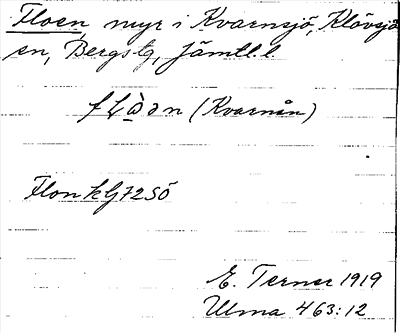 Floen myr i Kvarnsjö, Klövsjö
sn, Bergs tg, Jämtl. l.
(Kvarnån)
Flon kG72SÖ
E. Terner 1919
Ulma 463:12